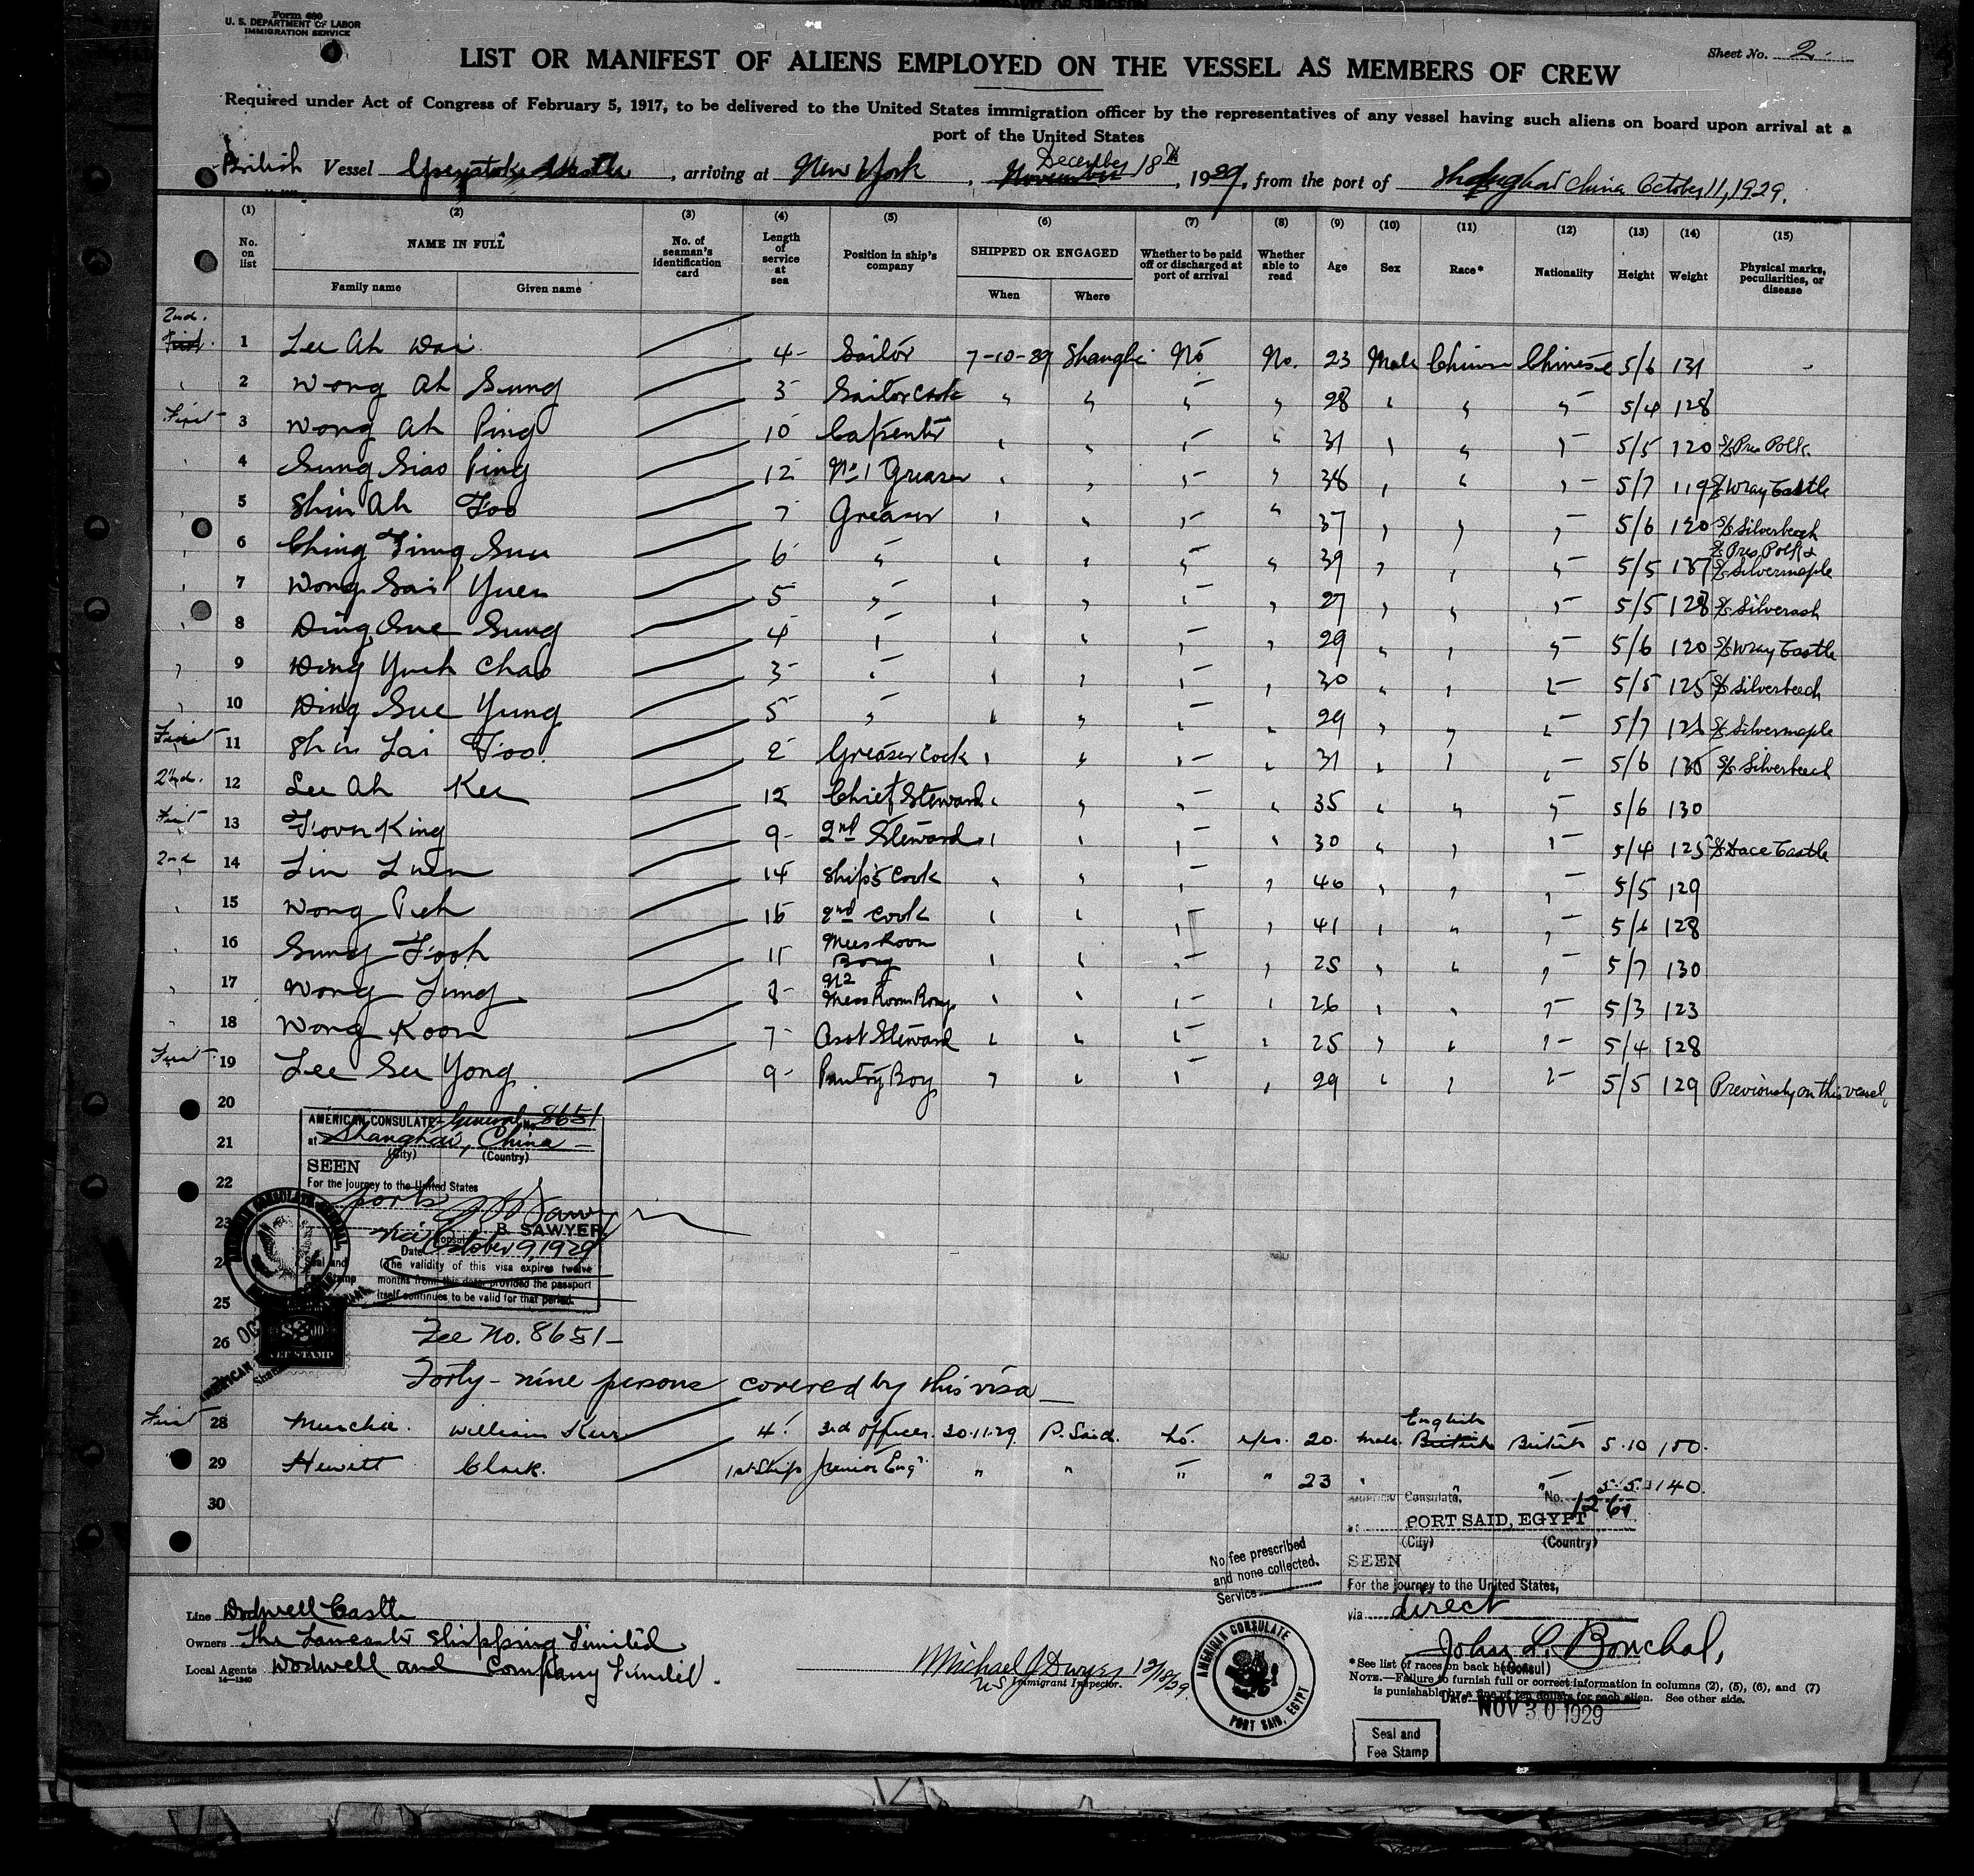 Form 680
U. S. DEPARTMENT OF LABOR
IMMIGRATION SERVICE
Sheet No. 2
LIST OR MANIFEST OF ALIENS EMPLOYED ON THE VESSEL AS MEMBERS OF CREW
Required under Act of Congress of February 5, 1917, to be delivered to the United States immigration officer by the representatives of any vessel having such aliens on board upon arrival at a
port of the United States
British Vessel Castle, arriving at New York, November December 18th, 1929, from the port of Shanghai China October 11, 1929.
(1) (2) (3) (4) (5) (6) (7) (8) (9) (10) (11) (12) (13) (14) (15)
No. on list NAME IN FULL No. of seaman's identification card Length of service at sea Position in ship's company SHIPPED OR ENGAGED Whether to be paid off or discharged at port of arrival Whether able to read Age Sex Race* Nationality Height Weight Physical marks, peculiarities, or disease
Family name Given name When Where
2nd. First. 1 Lee Ah Wai 4- Sailor 7-10-29 Shanghai No No. 23 Male Chinese Chinese 5/6 131
" 2 Wong Ah Sung 3- Sailor Cook " " " " 28 " " " 5/4 128
First 3 Wong Ah Ping 10 Carpenter " " " " 31 " " " 5/5 120 S/S Pres Polk.
" 4 Sung Siao Ping 12 No 1 Greaser " " " " 38 " " " 5/7 119 S/S Wray Castle
" 5 Shin Ah Foo 7 Greaser " " " " 37 " " " 5/6 120 S/S Silverbeech
" 6 Ching Suu 6 " " " " " 39 " " " 5/5 137 S/S Pres Polk & S/S Silvermaple
" 7 Wong Sai Yuen 5 " " " " " 27 " " " 5/5 128 S/S Silverash
" 8 Ding Sue Sung 4 " " " " " 29 " " " 5/6 120 S/S Wray Castle
" 9 Ding Yueh Chao 3- " " " " " 30 " " " 5/5 125 S/S Silverbeech
" 10 Ding Sue Yung 5 " " " " " 29 " " " 5/7 S/S Silvermaple
First 11 Shin Lai Foo. 2 Greaser Cook " " " " 31 " " " 5/6 S/S Silverbeech
2nd. 12 Lee Ah Kee 12 Chief Steward " " " " 35 " " " 5/6 130
First 13 King 9- 2nd Steward " " " " 30 " " " 5/4 125 S/S Dace Castle
2nd 14 14 Ship's Cook " " " " 40 " " " 5/5 129
" 15 Wong Peh 2nd Cook " " " " 41 " " " 5/6 128
" 16 Sung Fooh Mess Room Boy " " " " 25 " " " 5/7 130
" 17 Wong 8- No 2 Mess Room Boy " " " " 26 " " " 5/3 123
" 18 Wong Koon 7- Asst Steward " " " " 25 " " " 5/4 128
First 19 Lee Su Yong 9- Pantry Boy " " " " 29 " " " 5/5 129 Previously on this vessel
20
AMERICAN CONSULATE General No. 8651
21
at Shanghai, China
(City) (Country)
SEEN
22
For the journey to the United States
ports
23
B. SAWYER
via Consul
Date October 9, 1929
(The validity of this visa expires twelve
months from this date, provided the passport
itself continues to be valid for that period.
25
26
Fee No. 8651-
Forty-nine persons covered by this visa
First 28 Murchie William Kerr 4. 3rd officer 20.11.29. P. Said. No. yes. 20. Male British English British 5.10 150.
29 Hewitt Clark. 1st Ship Junior Eng " " " " 23 " " " 5.5. 140.
30
American Consulate, No.
at PORT SAID, EGYPT
(City) (Country)
No fee prescribed
and none collected.
Service
SEEN
For the journey to the United States,
via direct
Line Dodwell Castle
Owners The Lancaster Shipping Limited
Local Agents Dodwell and Company Limited.
14-1240
Michael J Dwyer 12/18/29.
US Immigrant Inspector.
AMERICAN CONSULATE
PORT SAID, EGYPT
(Consul)
*See list of races on back hereof.
NOTE.—Failure to furnish full or correct information in columns (2), (5), (6), and (7)
is punishable by a fine of ten dollars for each alien. See other side.
Date NOV 30 1929
Seal and
Fee Stamp